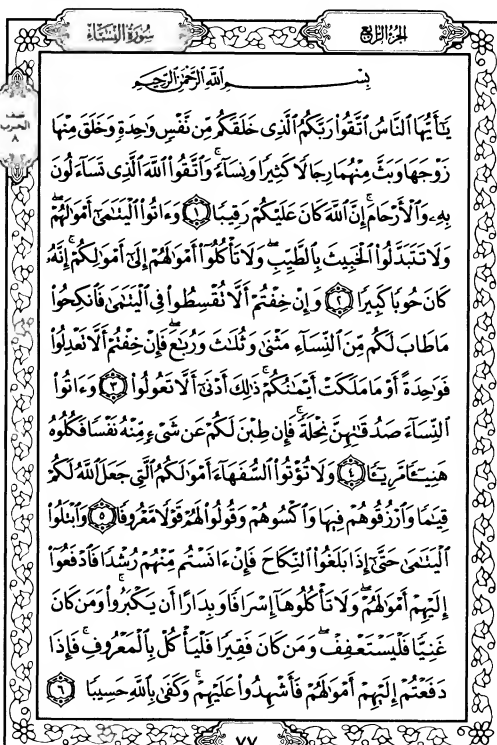 الجزء الرابع
سورة النساء
نصف
الحزب
٨
بِسْمِ اللَّهِ الرَّحْمَٰنِ الرَّحِيمِ
يَٰٓأَيُّهَا ٱلنَّاسُ ٱتَّقُوا۟ رَبَّكُمُ ٱلَّذِى خَلَقَكُم مِّن نَّفْسٍ وَٰحِدَةٍ وَخَلَقَ مِنْهَا
زَوْجَهَا وَبَثَّ مِنْهُمَا رِجَالًا كَثِيرًا وَنِسَآءً ۚ وَٱتَّقُوا۟ ٱللَّهَ ٱلَّذِى تَسَآءَلُونَ
بِهِۦ وَٱلْأَرْحَامَ ۚ إِنَّ ٱللَّهَ كَانَ عَلَيْكُمْ رَقِيبًا ١ وَءَاتُوا۟ ٱلْيَتَٰمَىٰٓ أَمْوَٰلَهُمْ ۖ
وَلَا تَتَبَدَّلُوا۟ ٱلْخَبِيثَ بِٱلطَّيِّبِ ۖ وَلَا تَأْكُلُوٓا۟ أَمْوَٰلَهُمْ إِلَىٰٓ أَمْوَٰلِكُمْ ۚ إِنَّهُۥ
كَانَ حُوبًا كَبِيرًا ٢ وَإِنْ خِفْتُمْ أَلَّا تُقْسِطُوا۟ فِى ٱلْيَتَٰمَىٰ فَٱنكِحُوا۟
مَا طَابَ لَكُم مِّنَ ٱلنِّسَآءِ مَثْنَىٰ وَثُلَٰثَ وَرُبَٰعَ ۖ فَإِنْ خِفْتُمْ أَلَّا تَعْدِلُوا۟
فَوَٰحِدَةً أَوْ مَا مَلَكَتْ أَيْمَٰنُكُمْ ۚ ذَٰلِكَ أَدْنَىٰٓ أَلَّا تَعُولُوا۟ ٣ وَءَاتُوا۟
ٱلنِّسَآءَ صَدُقَٰتِهِنَّ نِحْلَةً ۚ فَإِن طِبْنَ لَكُمْ عَن شَىْءٍ مِّنْهُ نَفْسًا فَكُلُوهُ
هَنِيٓـًٔا مَّرِيٓـًٔا ٤ وَلَا تُؤْتُوا۟ ٱلسُّفَهَآءَ أَمْوَٰلَكُمُ ٱلَّتِى جَعَلَ ٱللَّهُ لَكُمْ
قِيَٰمًا وَٱرْزُقُوهُمْ فِيهَا وَٱكْسُوهُمْ وَقُولُوا۟ لَهُمْ قَوْلًا مَّعْرُوفًا ٥ وَٱبْتَلُوا۟
ٱلْيَتَٰمَىٰ حَتَّىٰٓ إِذَا بَلَغُوا۟ ٱلنِّكَاحَ فَإِنْ ءَانَسْتُم مِّنْهُمْ رُشْدًا فَٱدْفَعُوٓا۟
إِلَيْهِمْ أَمْوَٰلَهُمْ ۖ وَلَا تَأْكُلُوهَآ إِسْرَافًا وَبِدَارًا أَن يَكْبَرُوا۟ ۚ وَمَن كَانَ
غَنِيًّا فَلْيَسْتَعْفِفْ ۖ وَمَن كَانَ فَقِيرًا فَلْيَأْكُلْ بِٱلْمَعْرُوفِ ۚ فَإِذَا
دَفَعْتُمْ إِلَيْهِمْ أَمْوَٰلَهُمْ فَأَشْهِدُوا۟ عَلَيْهِمْ ۚ وَكَفَىٰ بِٱللَّهِ حَسِيبًا ٦
٧٧